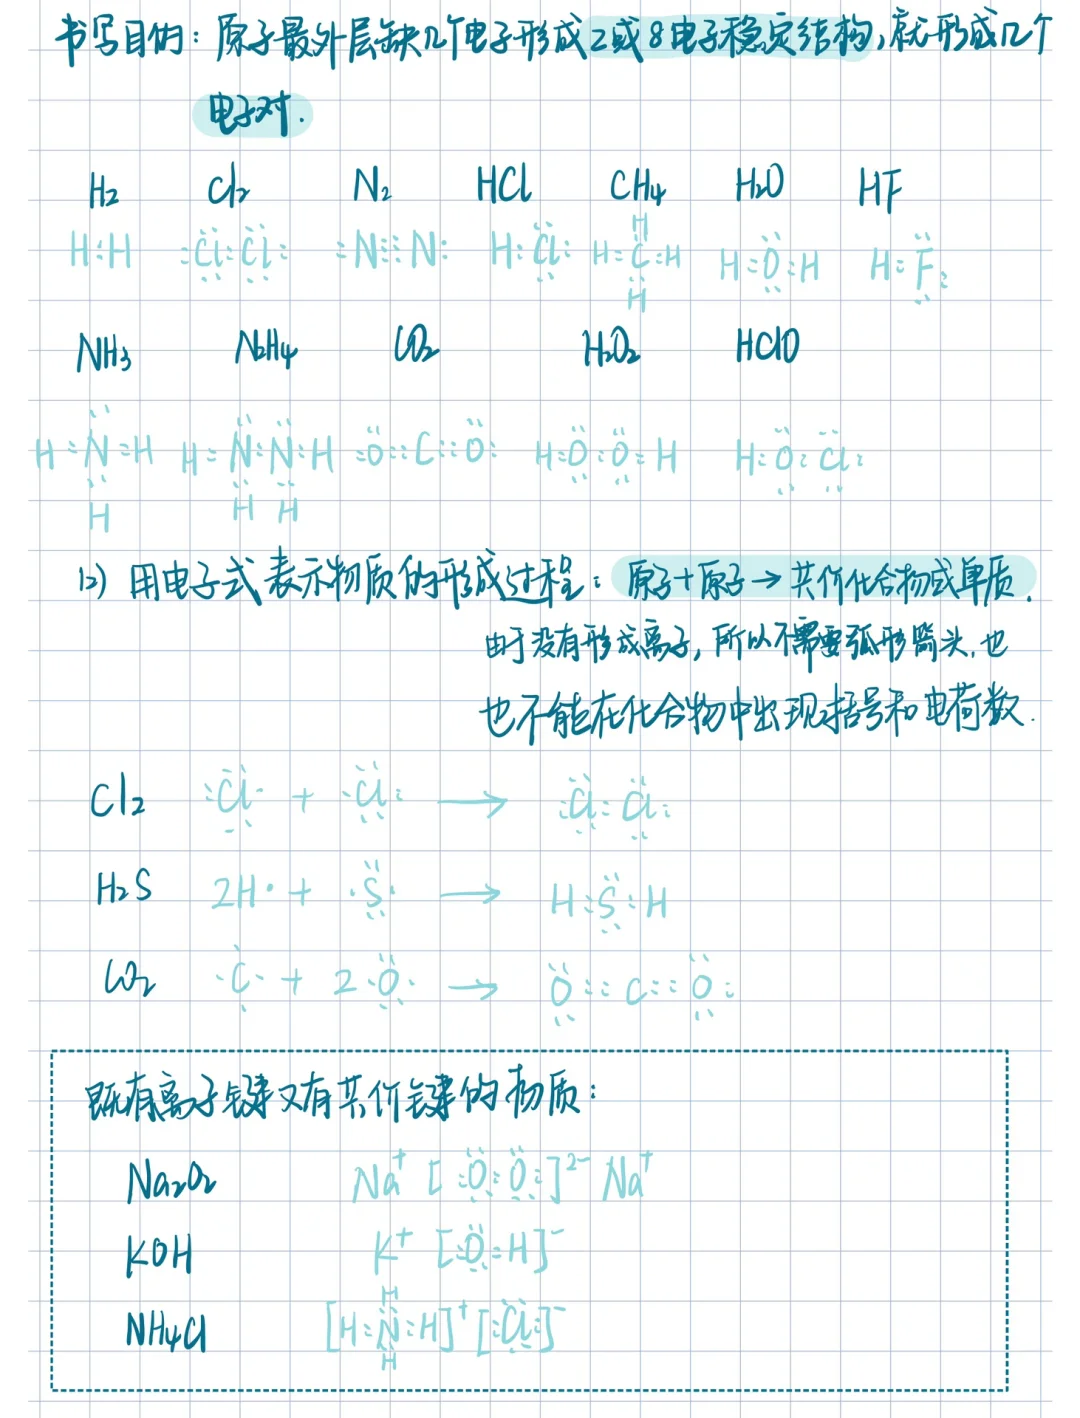 书写目的：原子最外层缺几个电子形成2或8电子稳定结构，就形成几个
电子对.
H₂ Cl₂ N₂ HCl CH₄ H₂O HF
H:H :Cl:Cl: :N⋮⋮N: H:Cl: H:C:H H:O:H H:F:
H
H
NH₃ N₂H₄ CO₂ H₂O₂ HClO
H:N:H H:N:N:H :O::C::O: H:O:O:H H:O:Cl:
H H H
(2) 用电子式表示物质的形成过程：原子+原子→共价化合物或单质.
由于没有形成离子，所以不需要弧形箭头，也
也不能在化合物中出现括号和电荷数.
Cl₂ :Cl· + ·Cl: → :Cl:Cl:
H₂S 2H· + ·S· → H:S:H
CO₂ ·C· + 2·O· → O::C::O:
既有离子键又有共价键的物质：
Na₂O₂ Na⁺[:O:O:]²⁻Na⁺
KOH K⁺[:O:H]⁻
NH₄Cl [H:N:H]⁺[:Cl:]⁻
H
H